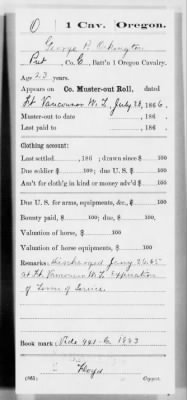 O | 1 Cav. | Oregon.
George B. Orkington
Pvt, Co. C, Batt'n 1 Oregon Cavalry.
Age 23 years.
Appears on Co. Muster-out Roll, dated
Ft Vancouver W.T., July 28, 1866.
Muster-out to date , 186 .
Last paid to , 186 .
Clothing account:
Last settled , 186 ; drawn since $ 100
Due soldier $ 100; due U. S. $ 100
Am't for cloth'g in kind or money adv'd $ 100
Due U. S. for arms, equipments, &c., $ 100
Bounty paid, $ 100; due $ 100
Valuation of horse, $ 100
Valuation of horse equipments, $ 100
Remarks: Discharged Jany 26. 65
at Ft. Vancouver W.T. Expiration
of Term of Service.
Book mark:
Floyd
(361) Copyist.